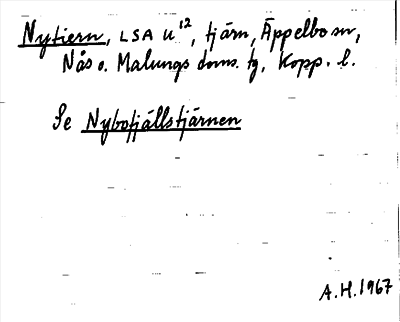 Nytjern, LSA U¹², tjärn, Äppelbo sn,
Nås o. Malungs doms. tg, Kopp. l.
Se Nybofjällstjärnen
A.H. 1967